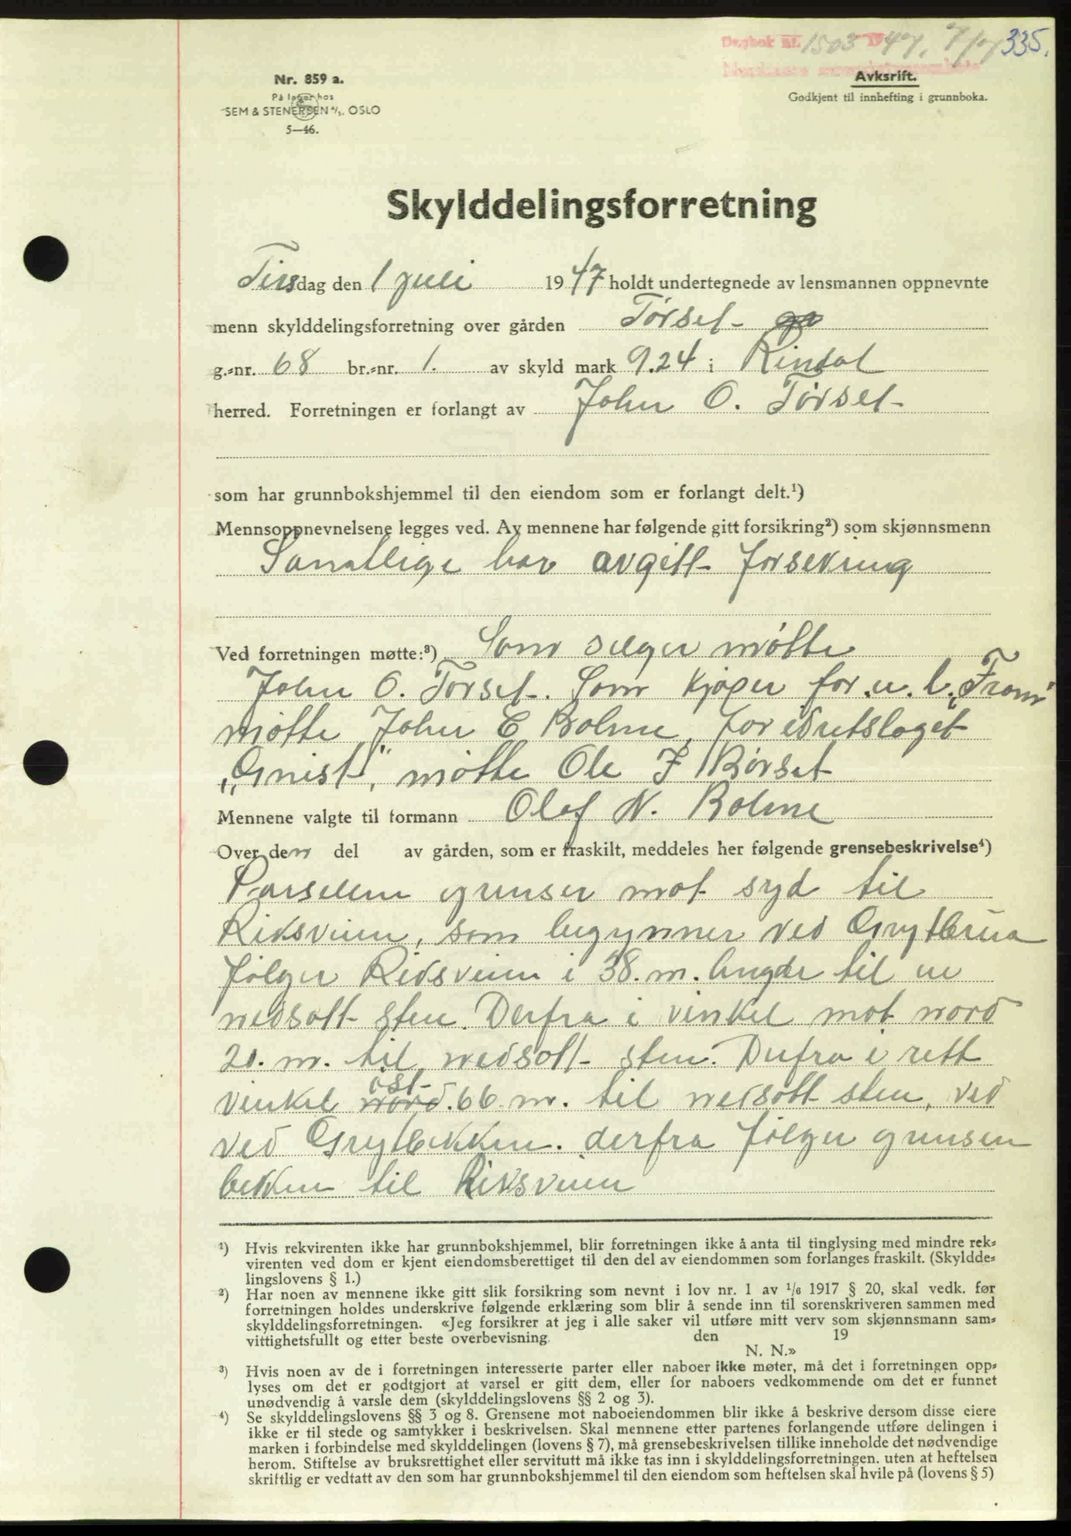 Dagbok nr. 1503 1947. 7/7 335.
Nr. 859 a.
På lager hos
SEM & STENERSEN A/S. OSLO
5—46.
Avksrift.
Godkjent til innhefting i grunnboka.
Skylddelingsforretning
Tirsdag den 1 juli 1947 holdt undertegnede av lensmannen oppnevnte
menn skylddelingsforretning over gården Tørset
g.-nr. 68 br.-nr. 1. av skyld mark 9.24 i Rindal
herred. Forretningen er forlangt av John O. Tørset
som har grunnbokshjemmel til den eiendom som er forlangt delt.¹)
Mennsoppnevnelsene legges ved. Av mennene har følgende gitt forsikring²) som skjønnsmenn
Samtlige har avgitt forsikring
Ved forretningen møtte:³) Som selger møtte
John O. Tørset. Som kjøper for u. l. „Fram"
møtte John E Bolme, for idretslaget
„Gnist", møtte Ole J Børset
Mennene valgte til formann Olaf N. Bolme
Over den del av gården, som er fraskilt, meddeles her følgende grensebeskrivelse⁴)
Parsellen grenser mot syd til
Riksveien, som begynner ved Grytbrua
følger Riksveien i 38. m. lengde til en
nedsatt sten. Derfra i vinkel mot nord
20. m. til nedsatt sten. Derfra i rett
vinkel nord øst 66 m. til nedsatt sten, ved
ved Grytbekken. derfra følger grensen
bekken til Riksveien
¹) Hvis rekvirenten ikke har grunnbokshjemmel, blir forretningen ikke å anta til tinglysing med mindre rek-
virenten ved dom er kjent eiendomsberettiget til den del av eiendommen som forlanges fraskilt. (Skyldde-
lingslovens § 1.)
²) Har noen av mennene ikke gitt slik forsikring som nevnt i lov nr. 1 av 1/6 1917 § 20, skal vedk. før
forretningen holdes underskrive følgende erklæring som blir å sende inn til sorenskriveren sammen med
skylddelingsforretningen. «Jeg forsikrer at jeg i alle saker vil utføre mitt verv som skjønnsmann sam-
vittighetsfullt og etter beste overbevisning. den 19
N. N.»
³) Hvis noen av de i forretningen interesserte parter eller naboer ikke møter, må det i forretningen opp-
lyses om det er godtgjort at varsel er gitt dem, eller for naboers vedkommende om det er funnet
unødvendig å varsle dem (skylddelingslovens §§ 2 og 3).
⁴) Se skylddelingslovens §§ 3 og 8. Grensene mot naboeiendommen blir ikke å beskrive dersom disse eiere
ikke er til stede og samtykker i beskrivelsen. Skal mennene etter partenes forlangende utføre delingen i
marken i forbindelse med skylddelingen (lovens § 7), må grensebeskrivelsen tillike inneholde det nødvendige
herom. Stiftelse av bruksrettighet eller servitutt må ikke tas inn i skylddelingsforretningen. uten at heftelsen
skriftlig er vedtatt av den som har grunnbokshjemmel til den eiendom som heftelsen skal hvile på (lovens § 5)